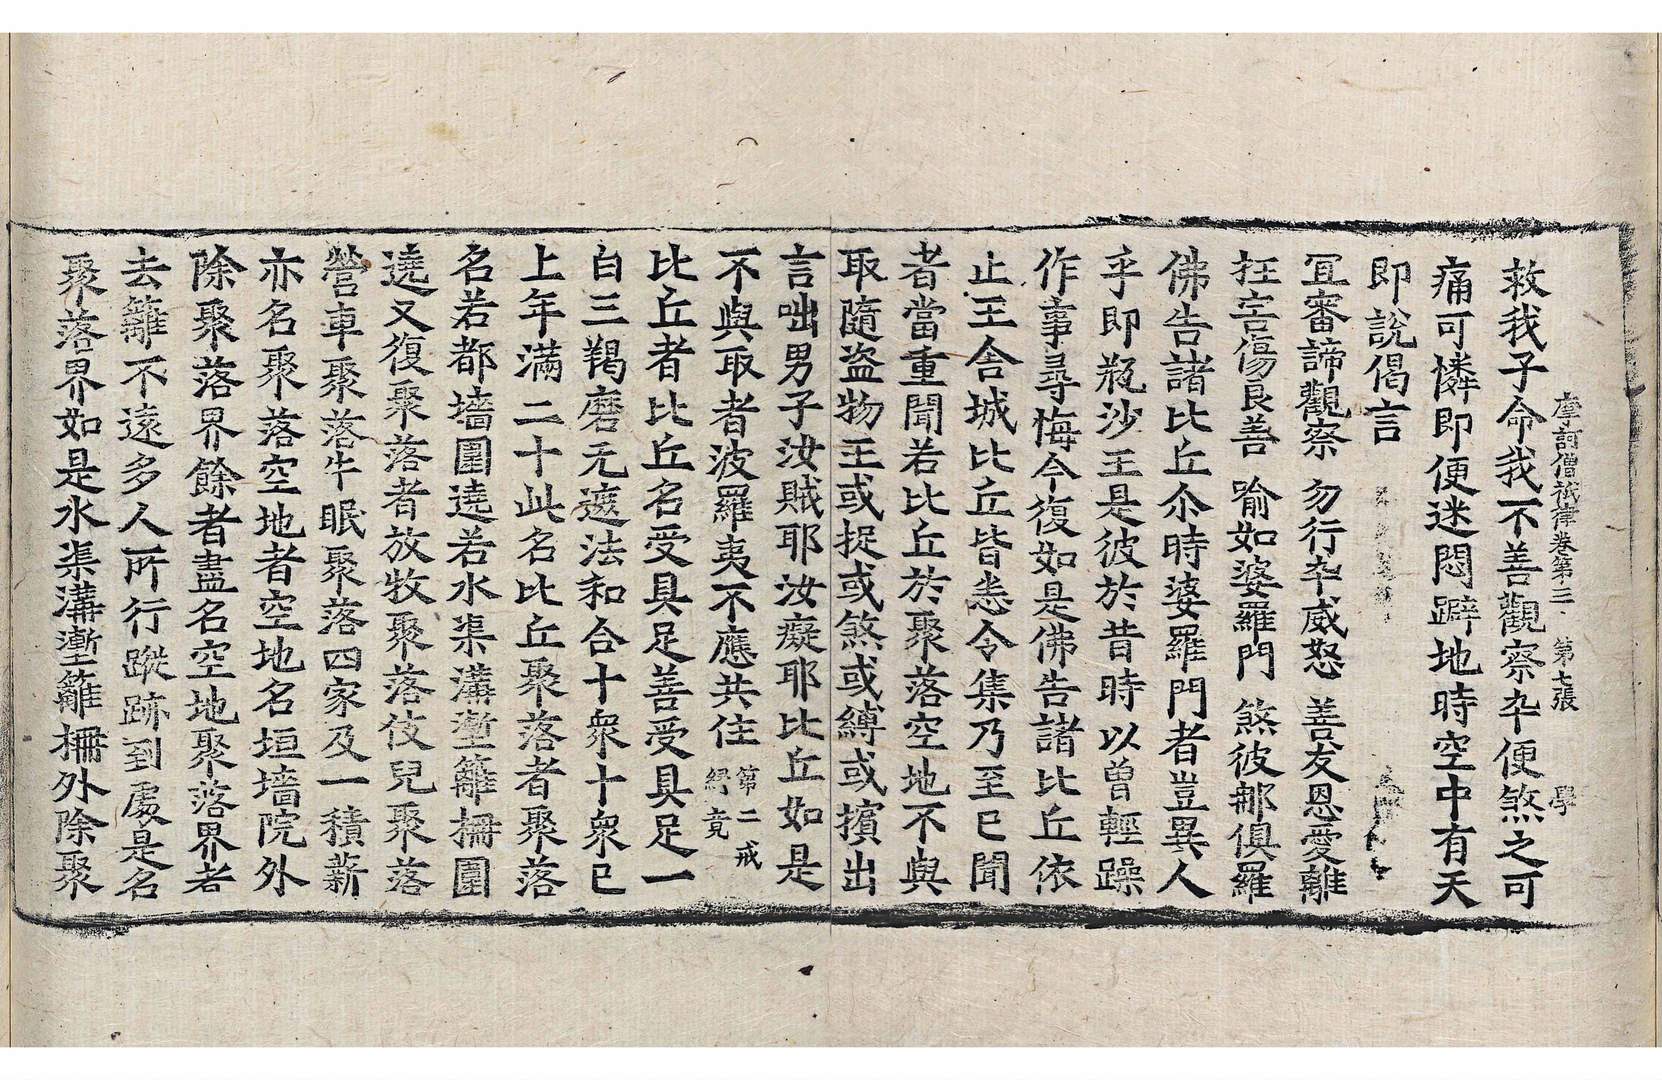 摩訶僧祇律卷第三 第七張 學
救我子命我不善觀察卒便煞之可
痛可憐即便迷悶躃地時空中有天
即說偈言
冝審諦觀察 勿行卒威怒 善友恩愛離
抂害傷良善 喻如婆羅門 煞彼郍俱羅
佛告諸比丘尒時婆羅門者豈異人
乎即瓶沙王是彼於昔時以曾輕躁
作事尋悔今復如是佛告諸比丘依
止王舍城比丘皆悉令集乃至已聞
者當重聞若比丘於聚落空地不與
取隨盜物王或捉或煞或縛或擯出
言咄男子汝賊耶汝癡耶比丘如是
不與取者波羅夷不應共住 第二戒 緣竟
比丘者比丘名受具足善受具足一
白三羯磨无遮法和合十衆十衆已
上年滿二十此名比丘聚落者聚落
名若都墻圍遶若水渠溝壍籬栅圍
遶又復聚落者放牧聚落伎兒聚落
營車聚落牛眠聚落四家及一積薪
亦名聚落空地者空地名垣墻院外
除聚落界餘者盡名空地聚落界者
去籬不遠多人所行蹤跡到處是名
聚落界如是水渠溝壍籬栅外除聚